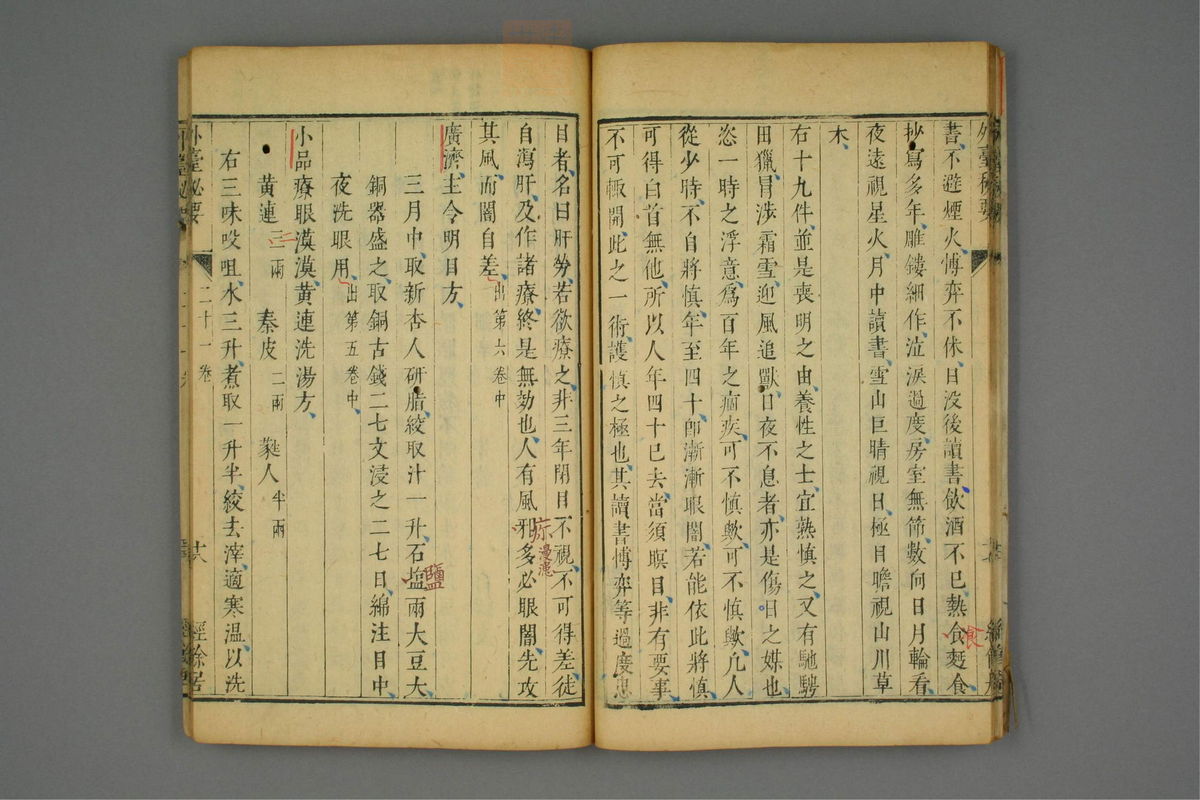 外臺秘要
書不避煙火博弈不休日没後讀書飲酒不已熱食麫食
食
抄寫多年雕鏤細作泣淚過度房室無節數向日月輪看
夜遠視星火月中讀書雪山巨睛視日極目瞻視山川草
木
右十九件並是喪明之由養性之士宜熟慎之又有馳騁
田獵冒涉霜雪迎風追獸日夜不息者亦是傷目之媒也
恣一時之浮意爲百年之痼疾可不慎歟可不慎歟凢人
從少時不自將慎年至四十即漸漸眼闇若能依此將慎
可得白首無他所以人年四十已去當須瞑目非有要事
不可輙開此之一術護慎之極也其讀書博弈等過度患
目者名曰肝勞若欲療之非三年閉目不視不可得差徒
自瀉肝及作諸療終是無効也人有風邪多必眼闇先攻
疹
其風而闇自差出第六卷中
廣濟主令明目方
三月中取新杏人研脂絞取汁一升石塩兩大豆大
鹽
銅器盛之取銅古錢二七文浸之二七日綿注目中
夜洗眼用出第五卷中
小品療眼漠漠黄連洗湯方
黄連三兩 秦皮二兩 蕤人半兩
右三味㕮咀水三升煮取一升半絞去滓適寒温以洗
外臺秘要 二十一卷 十六 經餘居